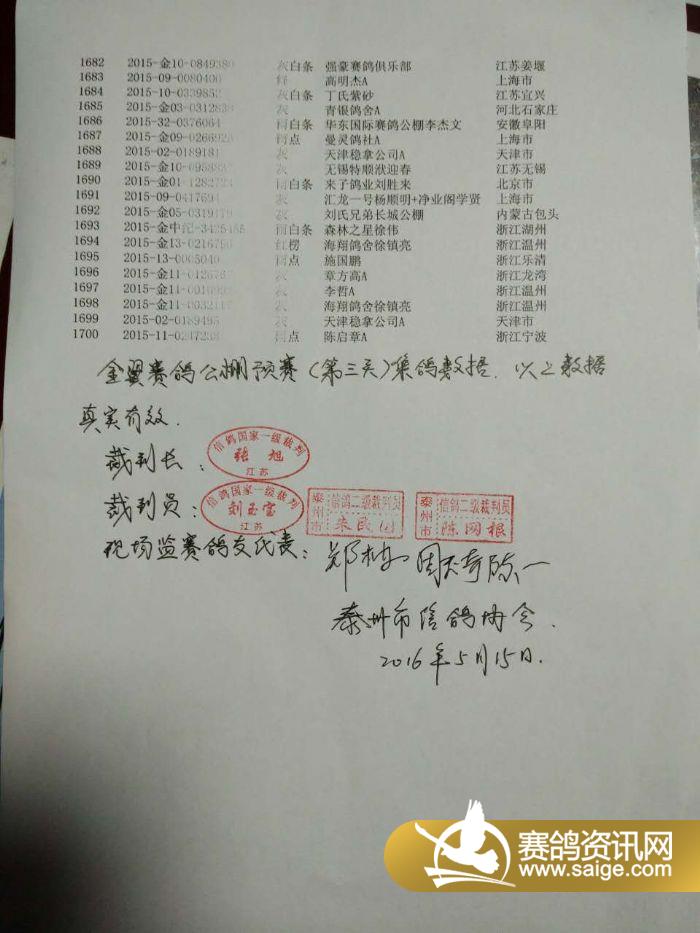 1682 2015-金10-0849380 灰白条 强豪赛鸽俱乐部 江苏姜堰
1683 2015-09-0080400 高明杰A 上海市
1684 2015-10-0339852 灰白条 丁氏紫砂 江苏宜兴
1685 2015-金03-031283 灰 青银鸽舍A 河北石家庄
1686 2015-32-0376064 雨白条 华东国际赛鸽公棚李杰文 安徽阜阳
1687 2015-金09-026692 雨点 曼灵鸽社A 上海市
1688 2015-02-0189181 灰 天津稳拿公司A 天津市
1689 2015-金10- 灰 无锡特顺洑迎春 江苏无锡
1690 2015-金01-1282724 雨白条 来子鸽业刘胜来 北京市
1691 2015-09-0417694 灰 汇龙一号杨顺明+净业阁学贤 上海市
1692 2015-金05-0319179 灰 刘氏兄弟长城公棚 内蒙古包头
1693 2015-金中记- 雨白条 森林之星徐伟 浙江湖州
1694 2015-金13-02167 红楞 海翔鸽舍徐镇亮 浙江温州
1695 2015-13-0005040 雨点 施国鹏 浙江乐清
1696 2015-金11- 灰 章方高A 浙江龙湾
1697 2015-金11- 灰 李哲A 浙江温州
1698 2015-金11- 灰 海翔鸽舍徐镇亮 浙江温州
1699 2015-02-0189495 灰 天津稳拿公司A 天津市
1700 2015-11- 雨点 陈启章A 浙江宁波
金翼赛鸽公棚预赛(第三关)集鸽数据.以上数据
真实有效.
裁判长:
信鸽国家一级裁判
张旭
江苏
裁判员:
信鸽国家一级裁判
刘玉宝
江苏
泰州市 信鸽二级裁判员
朱民
泰州市 信鸽二级裁判员
陈网根
现场监赛鸽友代表:
泰州市信鸽协会.
2016年5月15日.
赛鸽资讯网
www.saige.com